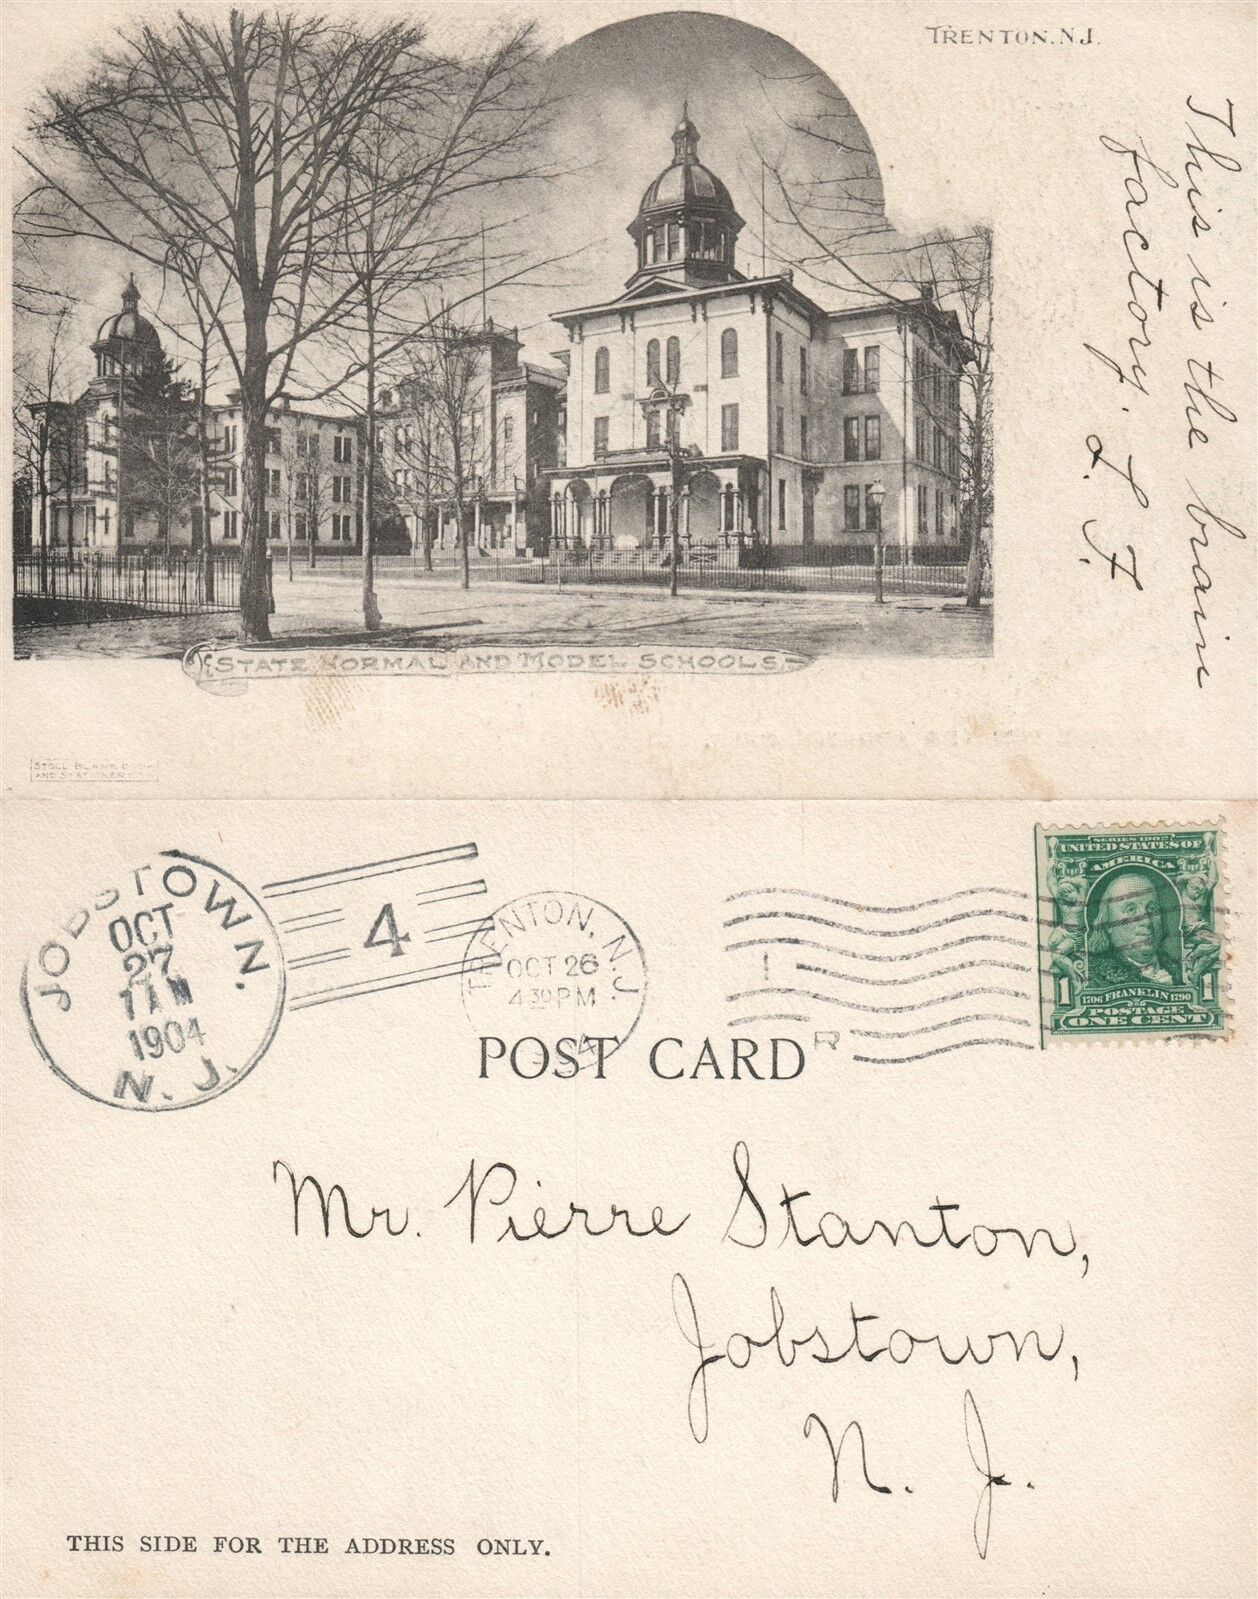 TRENTON, N.J.
This is the brain
factory. L. F.
STATE NORMAL AND MODEL SCHOOLS
STOLL BLANK BOOK
AND STATIONERY
JOBSTOWN,
OCT
27
7 AM
1904
N. J.
4
TRENTON, N.J.
OCT 26
4 30 PM
SERIES 1902
UNITED STATES OF
AMERICA
1 1
1706 FRANKLIN 1790
POSTAGE
ONE CENT
POST CARD
Mr. Pierre Stanton,
Jobstown,
N. J.
THIS SIDE FOR THE ADDRESS ONLY.